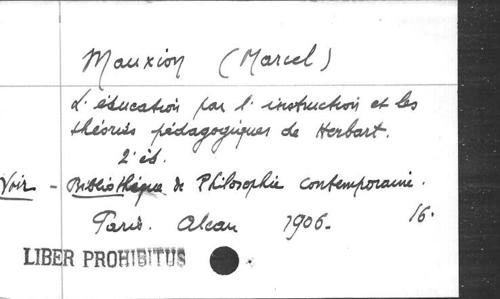 Mauxion (Marcel)
L'éducation par l'instruction et les
théories pédagogiques de Herbart.
2' éd.
Voir - Bibliothèque de Philosophie contemporaine.
Paris. Alcan 1906. 16.
LIBER PROHIBITUS